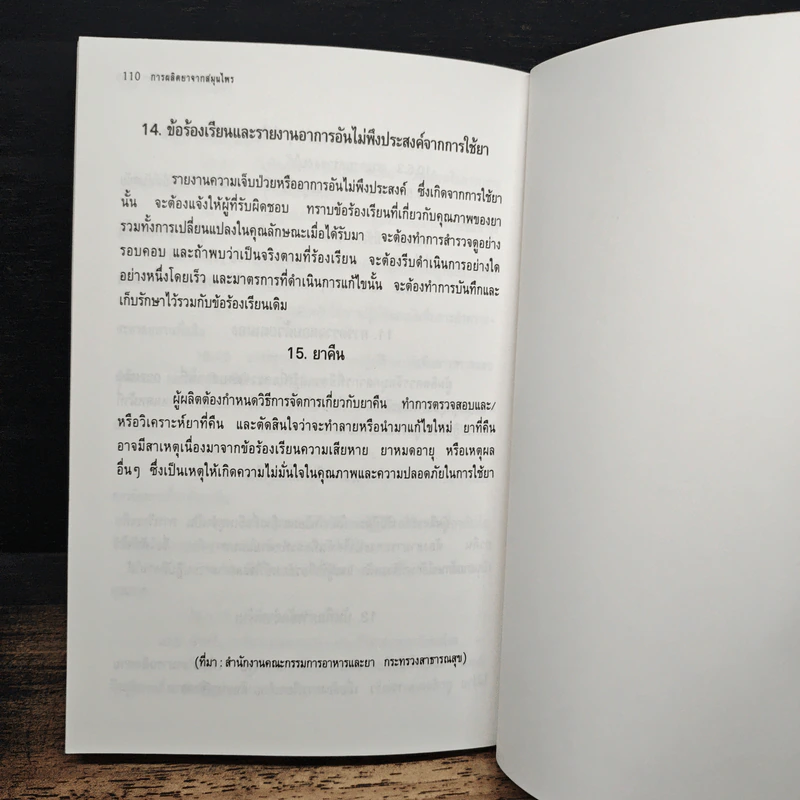 110 การผลิตยาจากสมุนไพร
14. ข้อร้องเรียนและรายงานอาการอันไม่พึงประสงค์จากการใช้ยา
รายงานความเจ็บป่วยหรืออาการอันไม่พึงประสงค์ ซึ่งเกิดจากการใช้ยา
นั้น จะต้องแจ้งให้ผู้ที่รับผิดชอบ ทราบข้อร้องเรียนที่เกี่ยวกับคุณภาพของยา
รวมทั้งการเปลี่ยนแปลงในคุณลักษณะเมื่อได้รับมา จะต้องทำการสำรวจดูอย่าง
รอบคอบ และถ้าพบว่าเป็นจริงตามที่ร้องเรียน จะต้องรีบดำเนินการอย่างใด
อย่างหนึ่งโดยเร็ว และมาตรการที่ดำเนินการแก้ไขนั้น จะต้องทำการบันทึกและ
เก็บรักษาไว้รวมกับข้อร้องเรียนเดิม
15. ยาคืน
ผู้ผลิตต้องกำหนดวิธีการจัดการเกี่ยวกับยาคืน ทำการตรวจสอบและ/
หรือวิเคราะห์ยาที่คืน และตัดสินใจว่าจะทำลายหรือนำมาแก้ไขใหม่ ยาที่คืน
อาจมีสาเหตุเนื่องมาจากข้อร้องเรียนความเสียหาย ยาหมดอายุ หรือเหตุผล
อื่นๆ ซึ่งเป็นเหตุให้เกิดความไม่มั่นใจในคุณภาพและความปลอดภัยในการใช้ยา
(ที่มา : สำนักงานคณะกรรมการอาหารและยา กระทรวงสาธารณสุข)